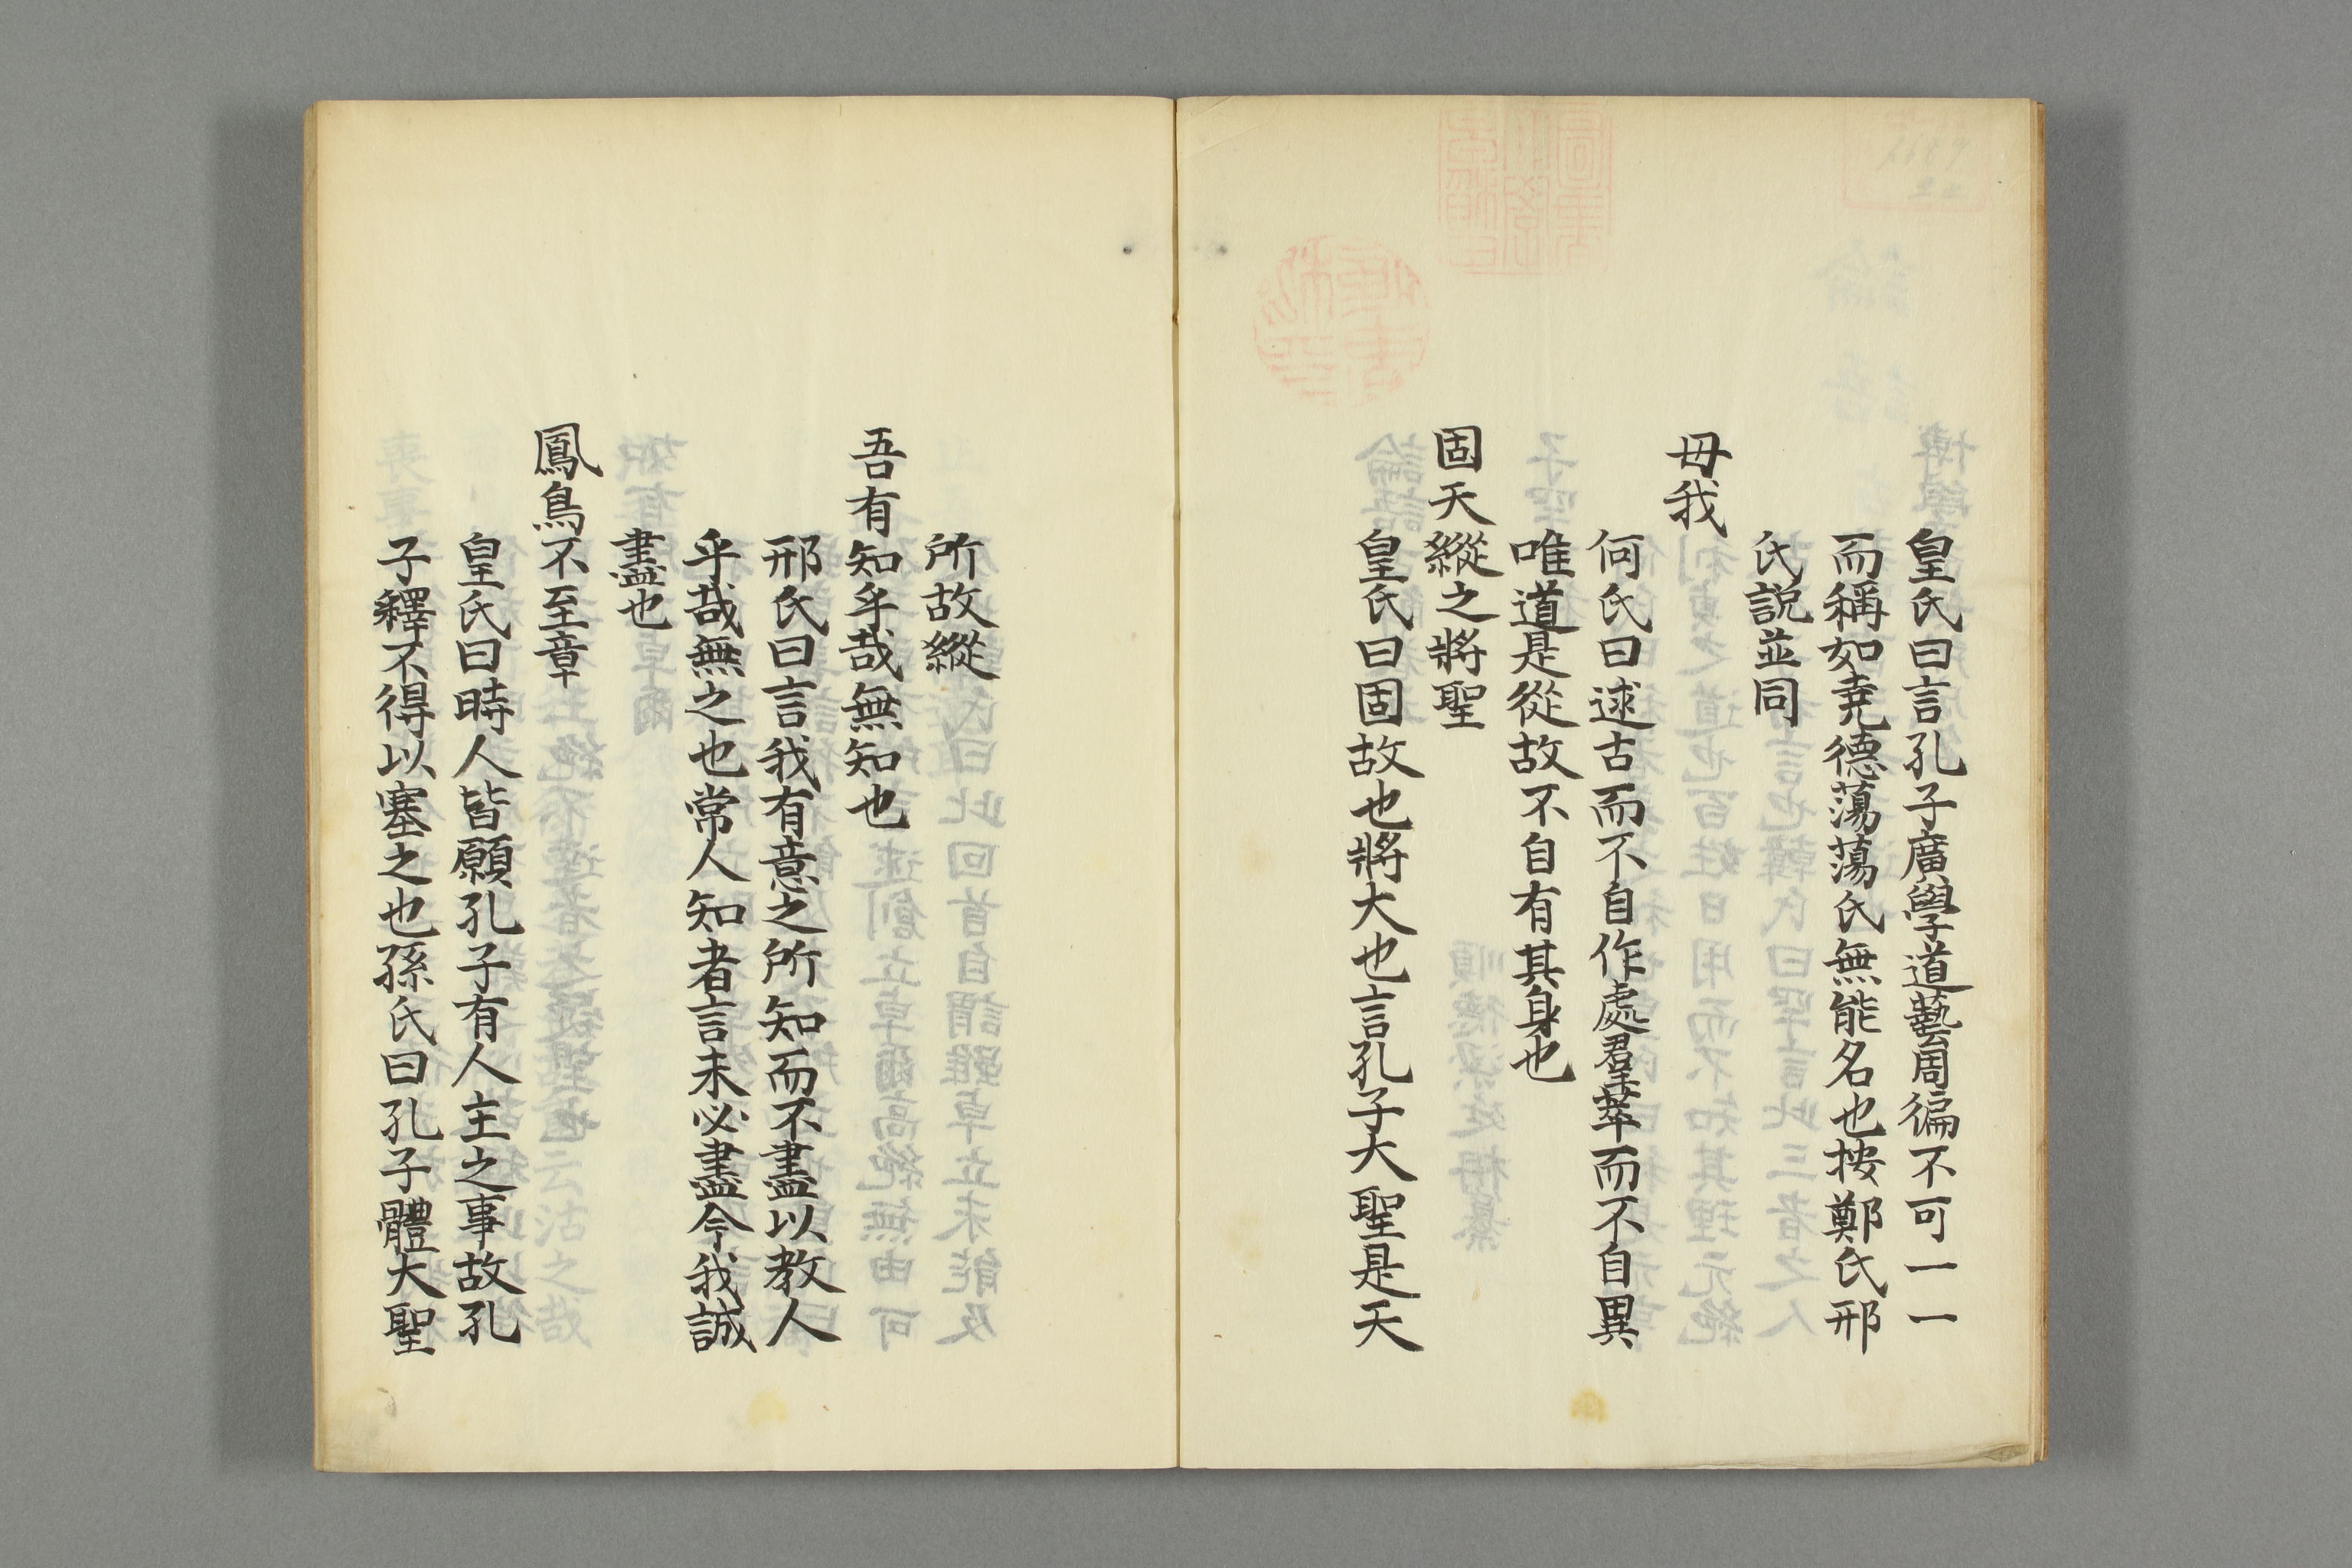 皇氏曰言孔子廣學道藝周徧不可一一
而稱如堯德蕩蕩氏無能名也按鄭氏邢
氏説並同
毋我
何氏曰述古而不自作處羣萃而不自異
唯道是從故不自有其身也
固天縱之將聖
皇氏曰固故也將大也言孔子大聖是天
所故縱
吾有知乎哉無知也
邢氏曰言我有意之所知而不盡以教人
乎哉無之也常人知者言未必盡今我誠
盡也
鳳鳥不至章
皇氏曰時人皆願孔子有人主之事故孔
子釋不得以塞之也孫氏曰孔子體大聖